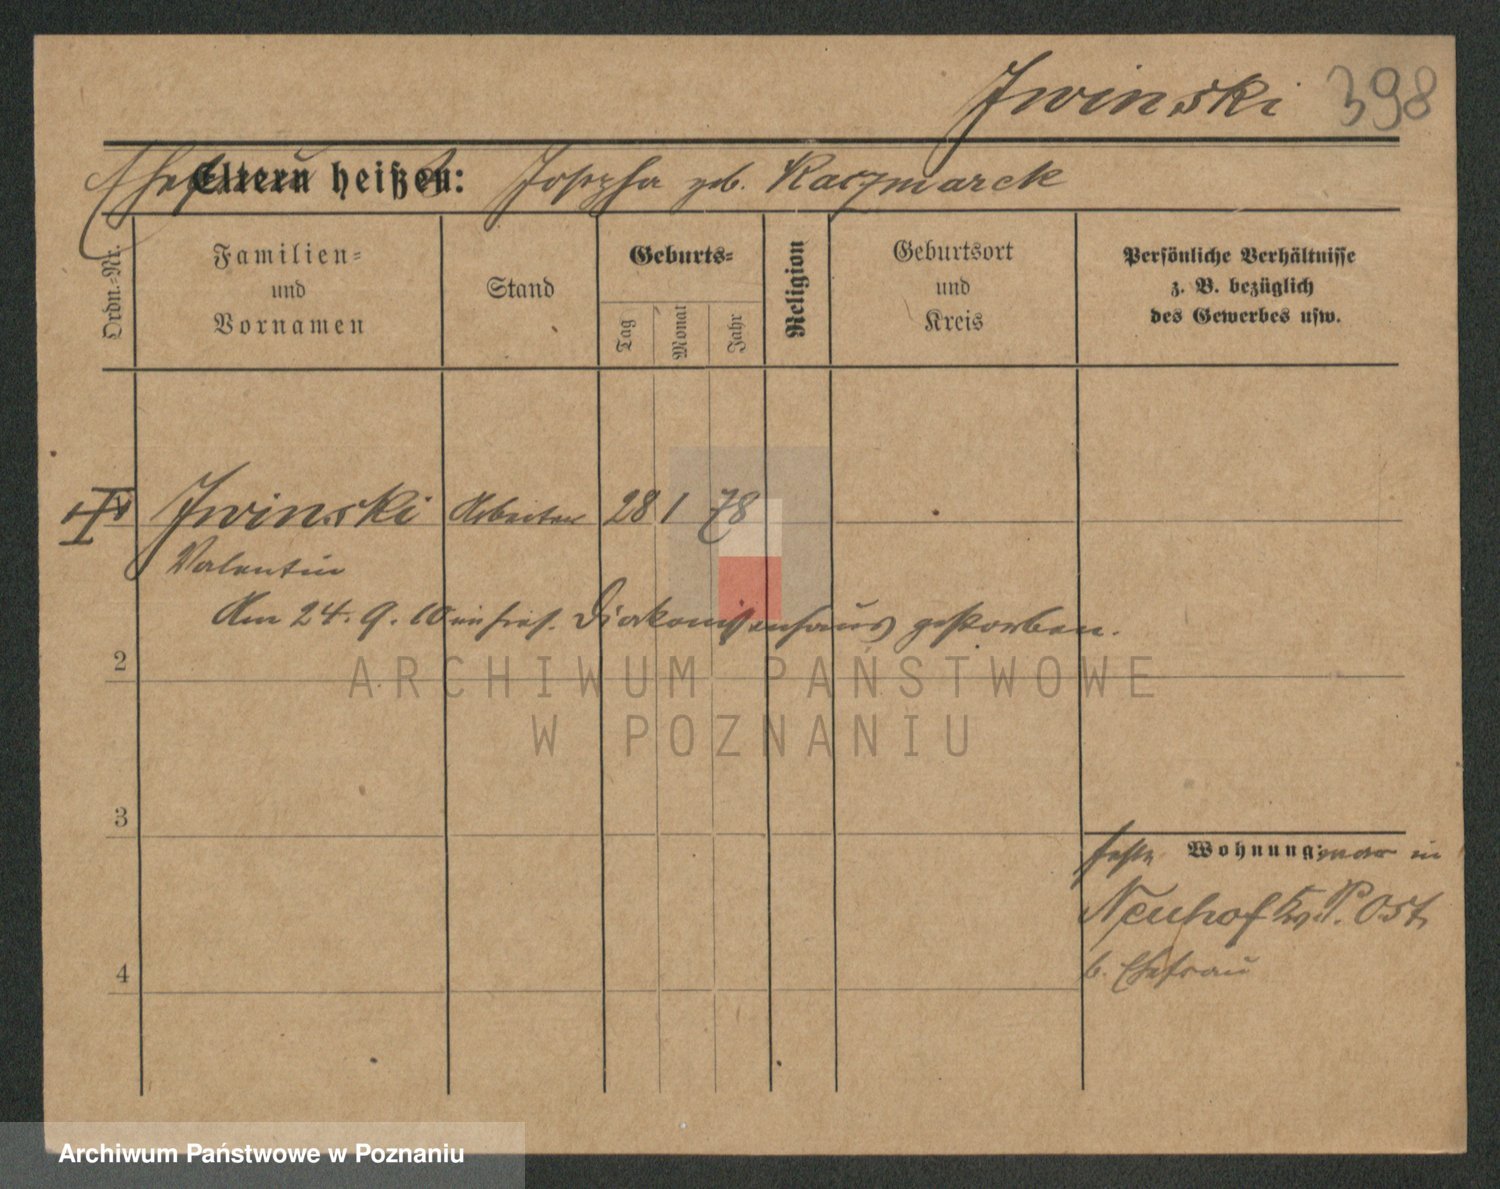 Iwinski 398
Ehefrau Eltern heißen: Josepha geb. Kaczmarek
Ordn.-Nr.
Familien-
und
Vornamen
Stand
Geburts-
Tag
Monat
Jahr
Religion
Geburtsort
und
Kreis
Persönliche Verhältnisse
z. B. bezüglich
des Gewerbes usw.
Iwinski Arbeiter 28 1 78
Valentin
Am 24. 9. 10 im hies. Diakonissenhaus gestorben.
2
3
4
Wohnung: war in
Neuhof Kr. P. Ost
b. Ehefrau
ARCHIWUM PAŃSTWOWE
W POZNANIU
Archiwum Państwowe w Poznaniu